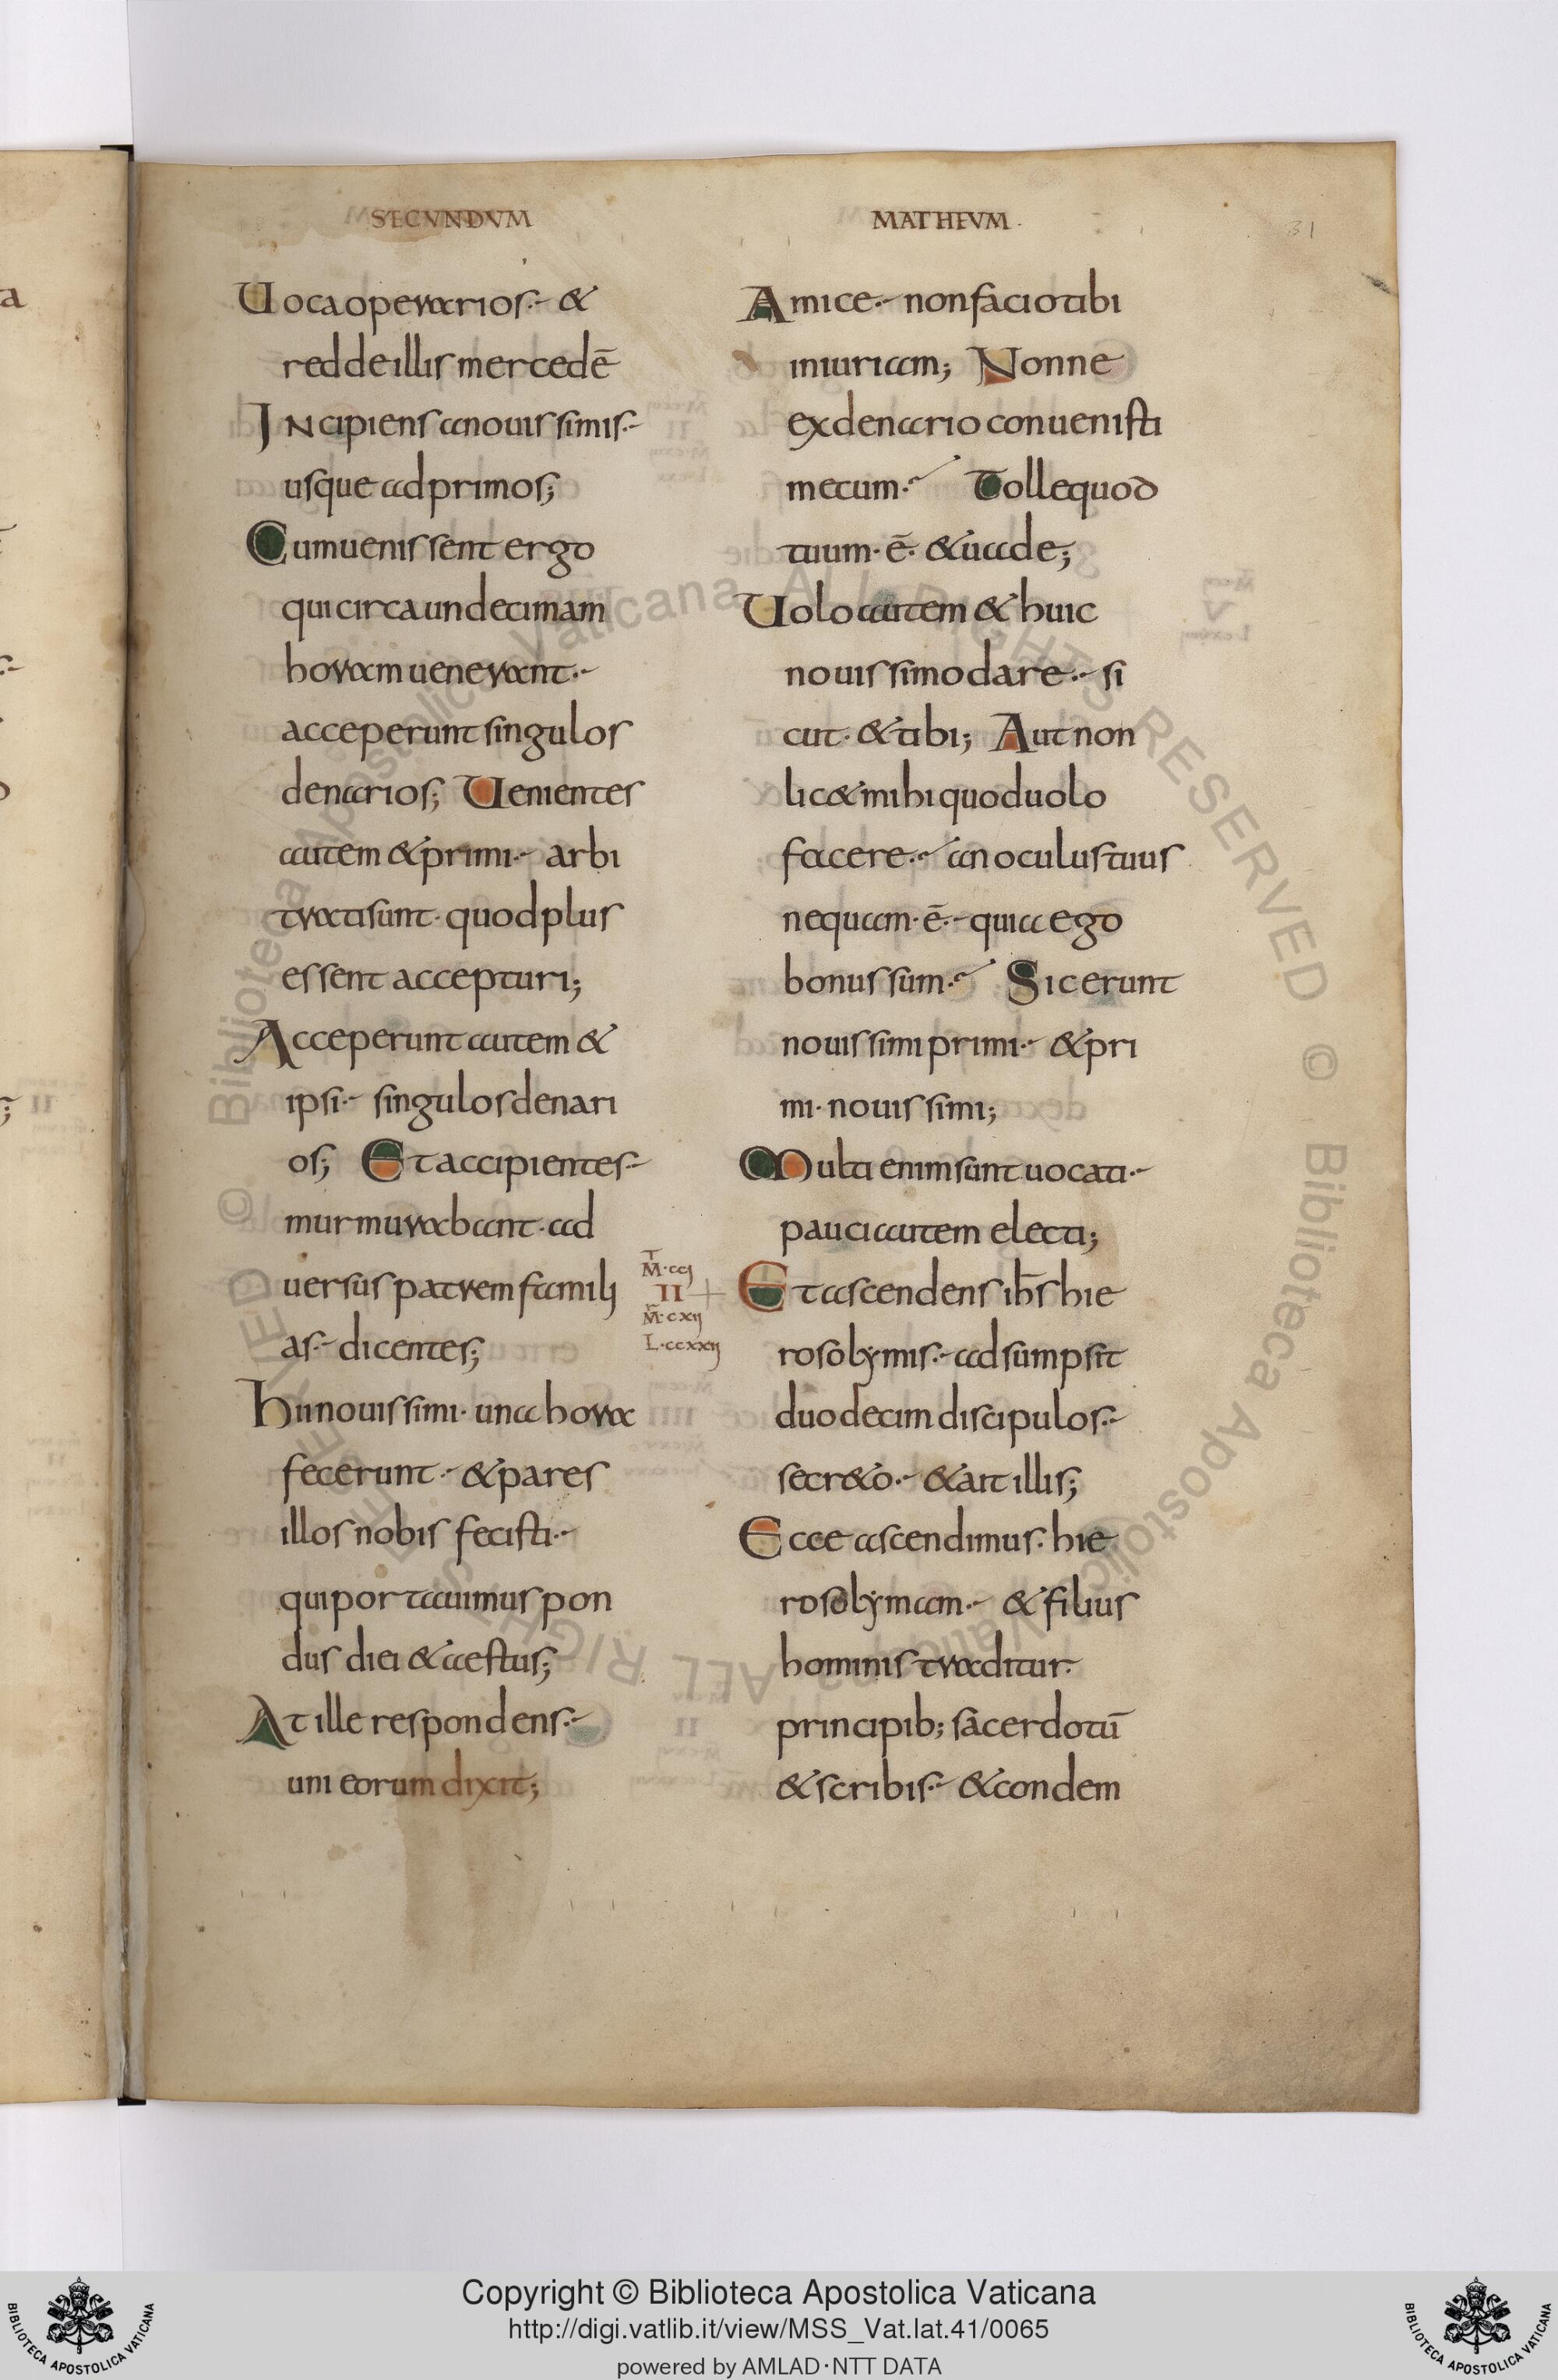 SECUNDUM
Uoca operarios. &
redde illis mercedē
Incipiens a nouissimis.
usque ad primos;
Cum uenissent ergo
qui circa undecimam
horam uenerant.
acceperunt singulos
denarios; Uenientes
autem & primi. arbi
trati sunt. quod plus
essent accepturi;
Acceperunt autem &
ipsi. singulos denari
os; Et accipientes.
murmurabant. ad
uersus patrem famili
as. dicentes;
Hii nouissimi. una hora
fecerunt. & pares
illos nobis fecisti.
qui portauimus pon
dus diei & aestus;
At ille respondens.
uni eorum dixit;
MATHEUM.
31
Amice. non facio tibi
iniuriam; Nonne
ex denario conuenisti
mecum. Tolle quod
tuum. ē. & uade;
Uolo autem & huic
nouissimo dare. si
cut. & tibi; Aut non
lic& mihi quod uolo
facere. an oculus tuus
nequam. ē. quia ego
bonus sum. Sic erunt
nouissimi primi. & pri
mi. nouissimi;
Multi enim sunt uocati.
pauci autem electi;
M. ccj
II
M. cxij
L. ccxxij
Et ascendens ih̄s hie
rosolymis. adsumpsit
duodecim discipulos.
secr&o. & ait illis;
Ecce ascendimus. hie
rosolymam. & filius
hominis traditur.
principib; sacerdotū
& scribis. & condem
© Biblioteca Apostolica Vaticana ALL RIGHTS RESERVED
© Biblioteca Apostolica Vaticana ALL RIGHTS RESERVED
Copyright © Biblioteca Apostolica Vaticana
http://digi.vatlib.it/view/MSS_Vat.lat.41/0065
powered by AMLAD·NTT DATA
BIBLIOTECA APOSTOLICA VATICANA
BIBLIOTECA APOSTOLICA VATICANA